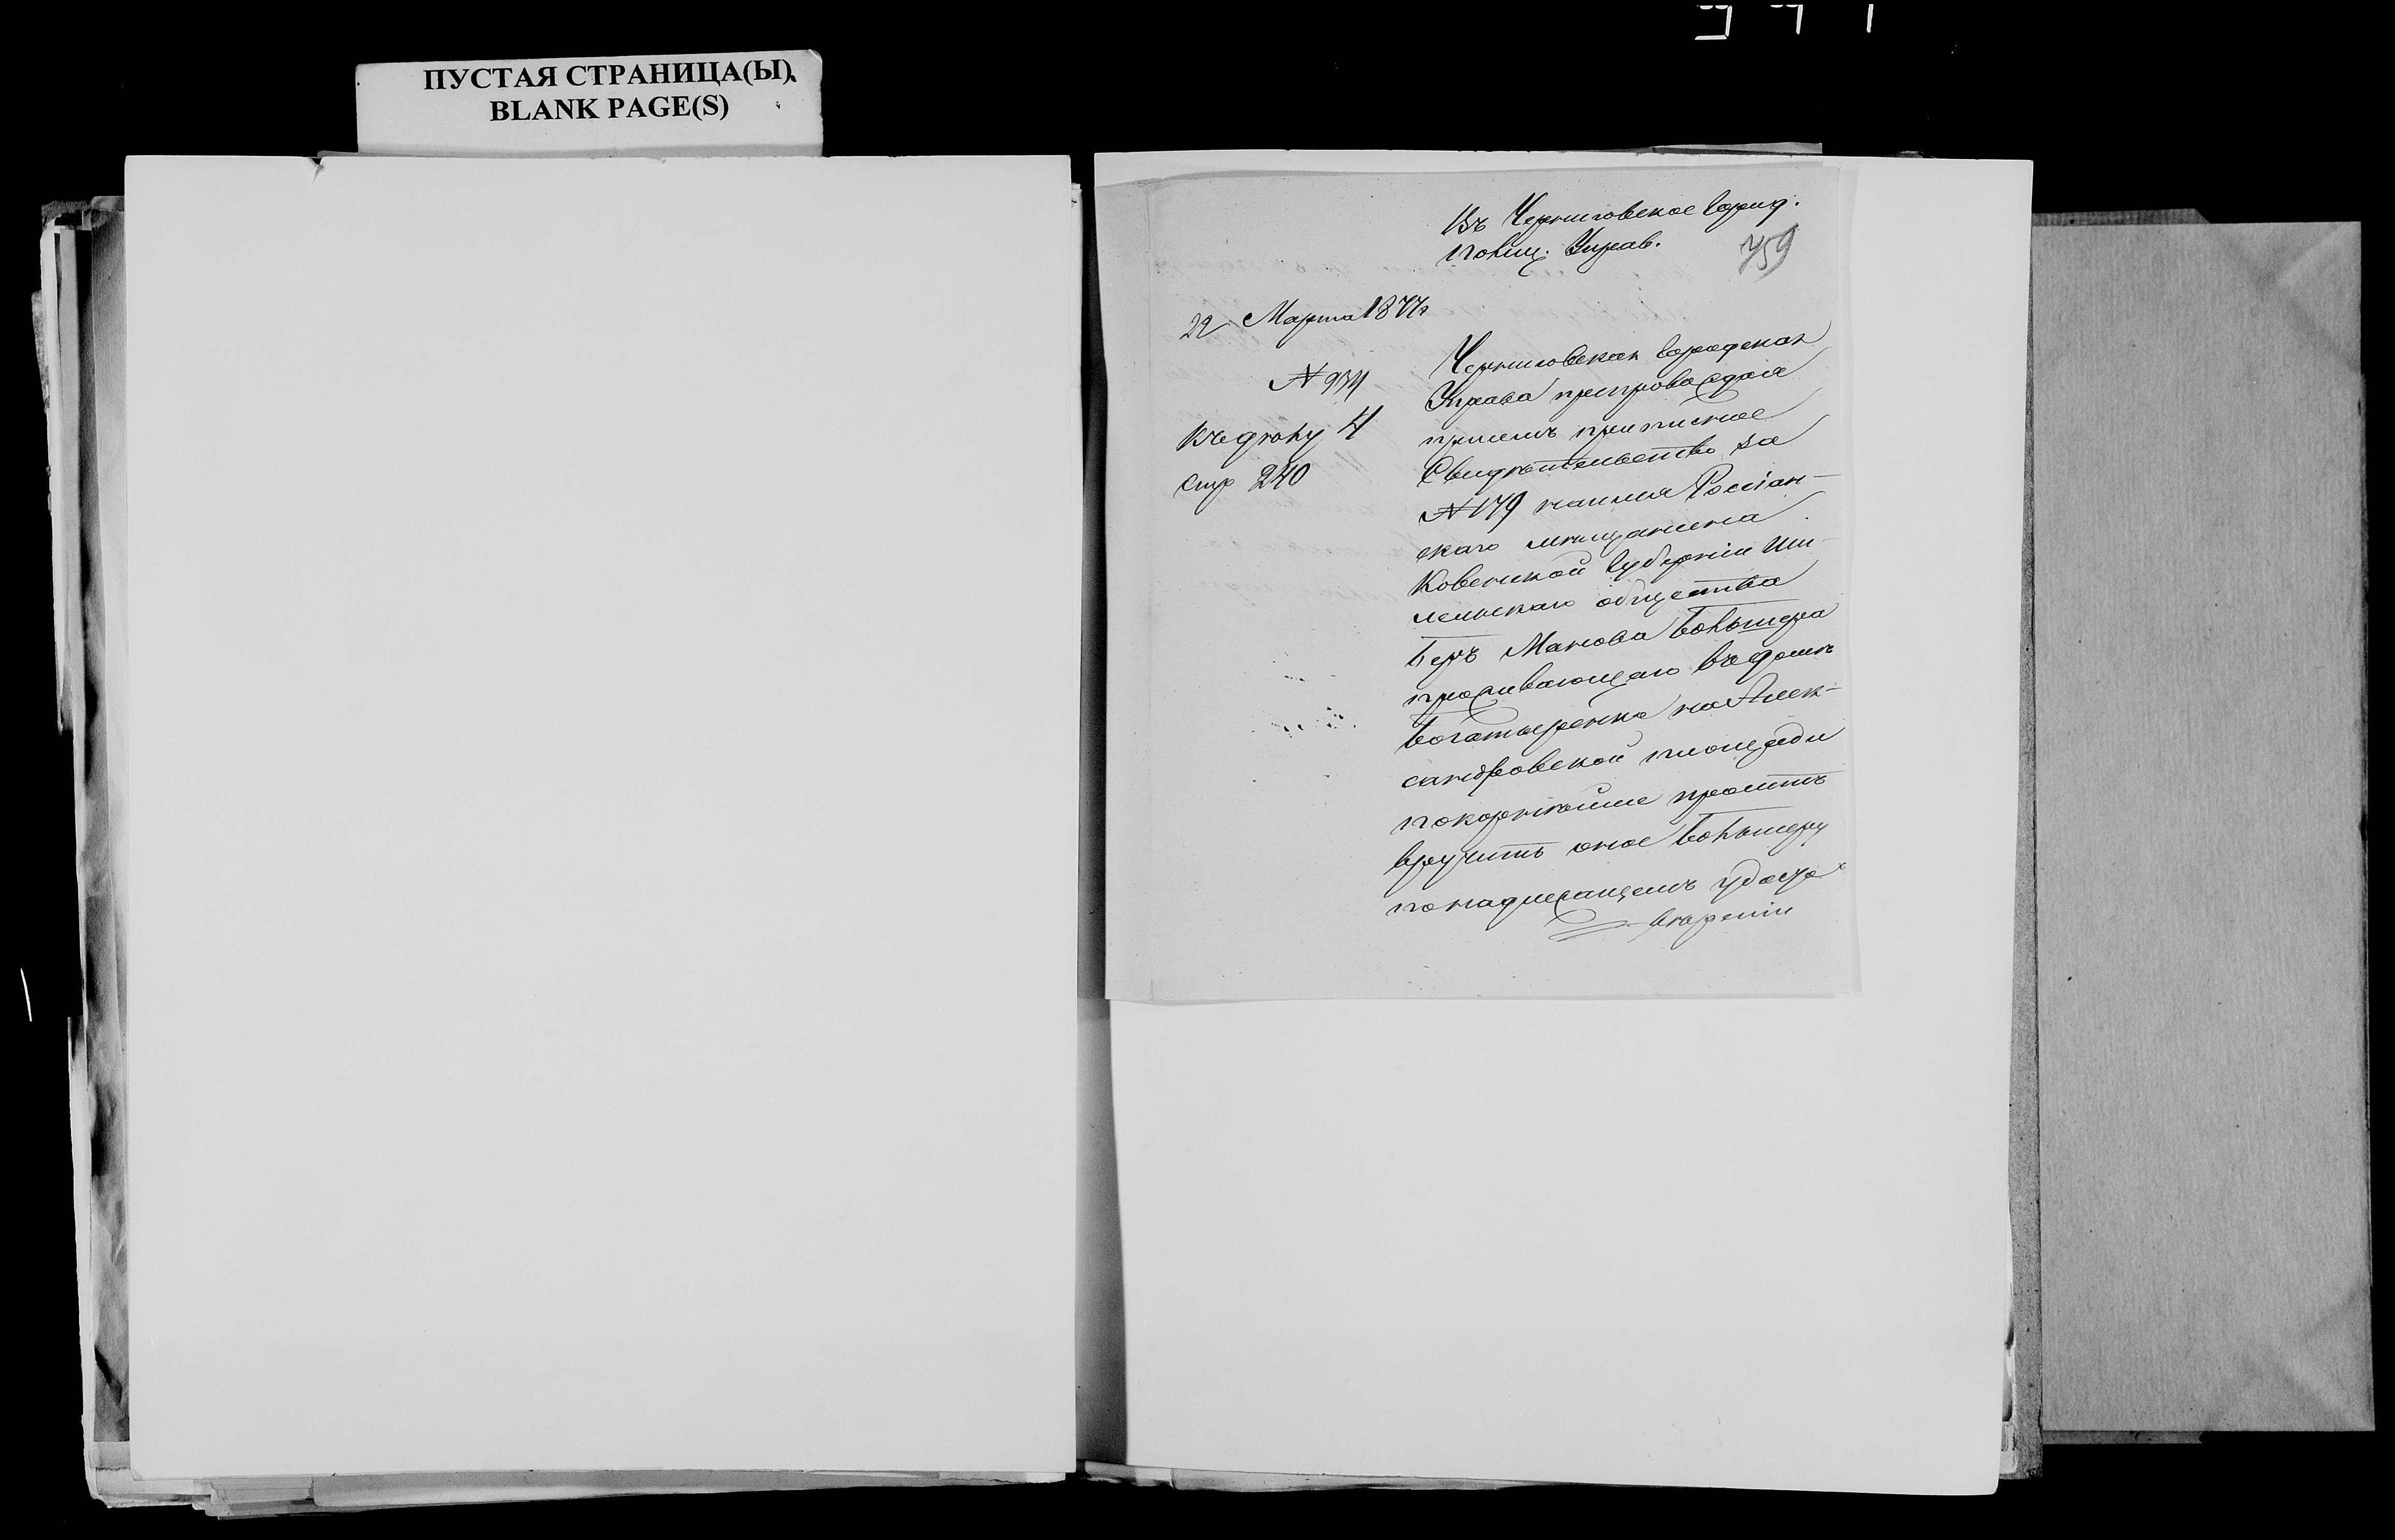 ПУСТАЯ СТРАНИЦА(Ы)
BLANK PAGE(S)
Въ Черниговское Город.
Полиц. Управ.
759
22 Марта 1877 г
№ 934
Къ дѣлу 4
стр 240
Черниговская Городская
Управа препровождая
присемъ приписное
Свидѣтельство за
№ 179 на имя Россіен-
скаго мѣщанина
Ковенской Губерніи
общества
Беръ
проживающаго въ домѣ
Богатыренка на Алек-
сандровской площади
покорнѣйше проситъ
вручить оное
понадлежащемъ удосто
вѣреніи